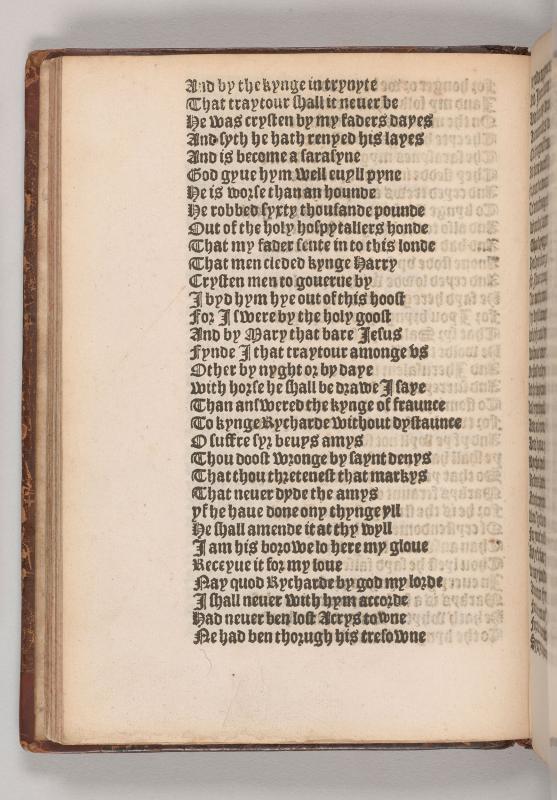 And by the kynge in trynyte
That traytour shall it neuer be
He was crysten by my faders dayes
And syth he hath renyed his layes
And is become a sarasyne
God gyue hym well euyll pyne
He is worse than an hounde
He robbed syxty thousande pounde
Out of the holy hospytallers honde
That my fader sente in to this londe
That men cleded kynge Harry
Crysten men to gouerue by
I byd hym hye out of this hoost
For I swere by the holy goost
And by Mary that bare Jesus
Fynde I that traytour amonge vs
Other by nyght or by daye
with horse he shall be drawe I saye
Than answered the kynge of fraunce
To kynge Rycharde without dystaunce
O suffre syr beuys amys
Thou doost wronge by saynt denys
That thou thretenest that markys
That neuer dyde the amys
yf he haue done ony thynge yll
He shall amende it at thy wyll
I am his borowe lo here my gloue
Receyue it for my loue
Nay quod Rycharde by god my lorde
I shall neuer with hym accorde
Had neuer ben lost Acrys towne
Ne had ben thorugh his tresowne